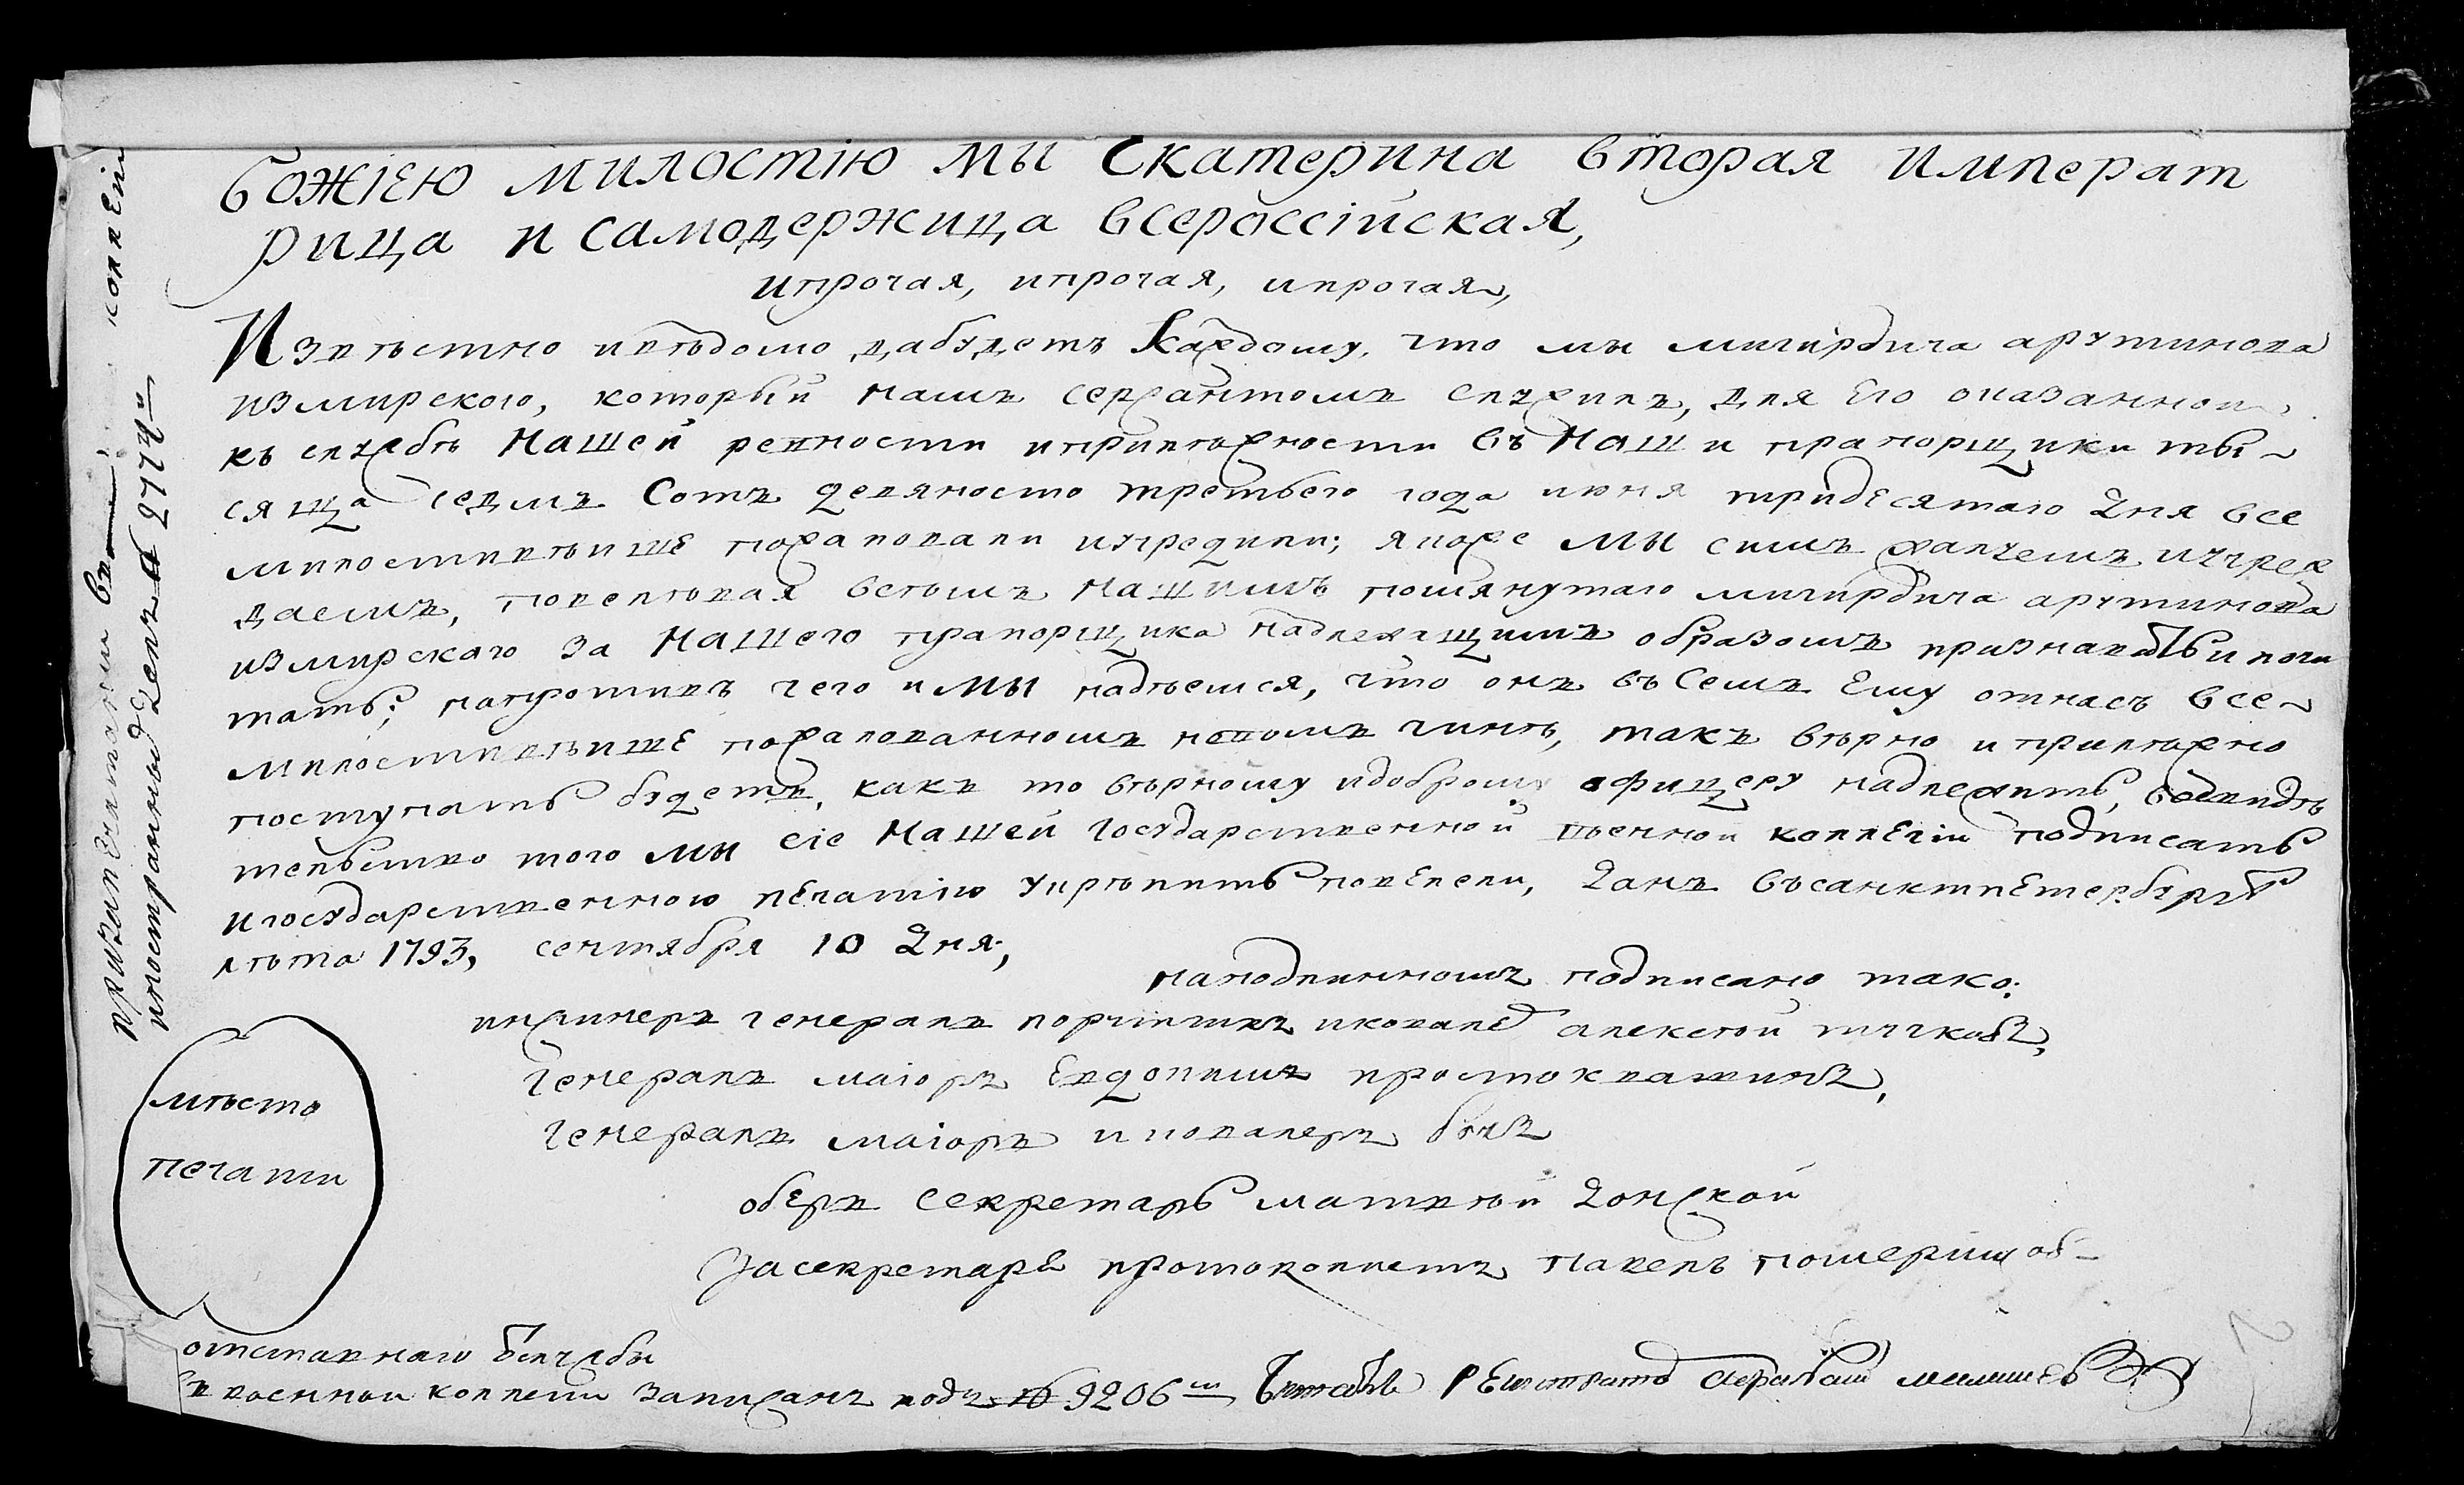 Божіею милостію мы Екатерина вторая императ
рица и самодержица всероссійская,
ипрочая, ипрочая, ипрочая,
Извѣстно ивѣдомо дабудетъ каждому, что мы мигирдича арутинова
измирского, который намъ сержантомъ служилъ, для его оказанной
къ службѣ Нашей ревности иприлѣжности въ Наши прапорщики ты-
сяща седмъ сотъ девяносто третьего года июня тридесятаго дня все
милостивѣише пожаловали иучредили; якоже мы симъ жалуемъ иучреж
даемъ, повелѣвая всѣмъ Нашимъ помянутаго мигирдича арутинова
измирскаго за Нашего прапорщика надлежащимъ образомъ признавать ипочи
тать; напротивъ чего и мы надѣемся, что онъ въ семъ ему отнасъ все-
милостивѣише пожалованномъ новомъ чинѣ, такъ вѣрно иприлѣжно
поступать будетъ, какъ то вѣрному идоброму офицеру надлежитъ, восвидѣ
тельство того мы сіе Нашей государственной военной коллегіи подписать
игосударственною печатію укрѣпить повелели, данъ въсанктпетербургѣ
лѣта 1793, сентября 10 дня;
наподлинномъ подписано тако:
инжинеръ генералъ порутчикъ икавалеръ алексѣй тучковъ,
генералъ маіоръ Евдокимъ простоквашинъ,
генералъ маіоръ икавалеръ
оберъ секретарь матвѣй донской
Засекретаря протоколистъ павелъ
мѣсто
печати
припечатании въ коллегіи
иностранныхъ делъ № 2774й
отставнаго отслужбы
въ военной коллегии записанъ подъ № 9206м